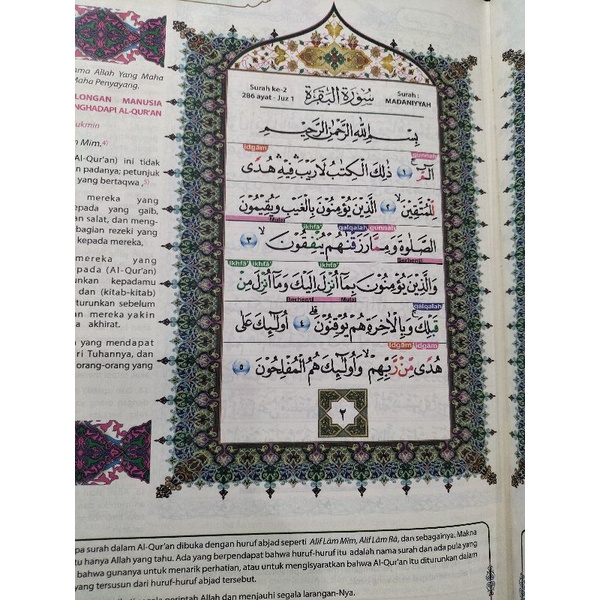 Surah ke-2
286 ayat - Juz 1
سُوْرَةُ الْبَقَرَةِ
Surah :
MADANIYYAH
بِسْمِ اللّٰهِ الرَّحْمٰنِ الرَّحِيْمِ
idgâm
gunnah
الۤمّۤ ۚ ١ ذٰلِكَ الْكِتٰبُ لَا رَيْبَ ۛ فِيْهِ ۛ هُدًى
لِّلْمُتَّقِيْنَۙ ٢ الَّذِيْنَ يُؤْمِنُوْنَ بِالْغَيْبِ وَيُقِيْمُوْنَ
Mulai
ikhfâ'
qalqalah
gunnah
الصَّلٰوةَ وَمِمَّا رَزَقْنٰهُمْ يُنْفِقُوْنَ ۙ ٣
Berhenti
ikhfâ'
ikhfâ'
ikhfâ'
وَالَّذِيْنَ يُؤْمِنُوْنَ بِمَآ اُنْزِلَ اِلَيْكَ وَمَآ اُنْزِلَ مِنْ
Berhenti
Mulai
qalqalah
قَبْلِكَ ۚ وَبِالْاٰخِرَةِ هُمْ يُوْقِنُوْنَ ۗ ٤ اُولٰۤىِٕكَ عَلٰى
idgâm
idgâm
هُدًى مِّنْ رَّبِّهِمْ ۙ وَاُولٰۤىِٕكَ هُمُ الْمُفْلِحُوْنَ ٥
٢
ama Allah Yang Maha
Maha Penyayang.
OLONGAN MANUSIA
NGHADAPI AL-QUR'AN
ukmin
Mim.4)
Al-Qur'an) ini tidak
n padanya; petunjuk
yang bertaqwa ,5)
mereka yang
epada yang gaib,
an salat, dan meng-
bagian rezeki yang
kepada mereka,
mereka yang
pada (Al-Qur'an)
unkan kepadamu
dan (kitab-kitab)
iturunkan sebelum
n mereka yakin
akhirat.
h yang mendapat
ri Tuhannya, dan
orang-orang yang
pa surah dalam Al-Qur'an dibuka dengan huruf abjad seperti Alif Lâm Mîm, Alif Lâm Râ, dan sebagainya. Makna
tu hanya Allah yang tahu. Ada yang berpendapat bahwa huruf-huruf itu adalah nama surah dan ada pula yang
bahwa gunanya untuk menarik perhatian, atau untuk mengisyaratkan bahwa Al-Qur'an itu diturunkan dalam
yang tersusun dari huruf-huruf abjad tersebut.
perintah Allah dan menjauhi segala larangan-Nya.